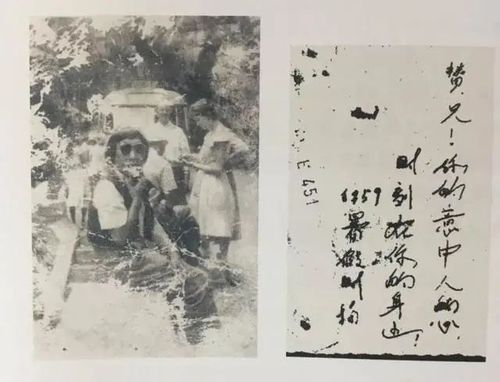 赞兄！你的意中人的心.
时刻在你的身边！
1959暑假时拍
E 451